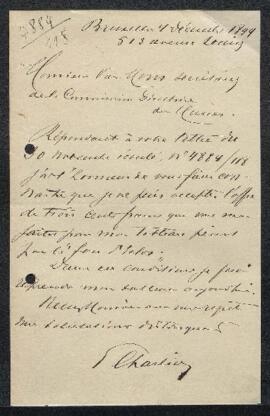 4884
118
Bruxelles 4 décembre 1899
513 avenue Louise
Monsieur Van Mons Secrétaire
de la Commission Directrice
des Musées
Répondant à votre lettre du
30 Novembre écoulé, N° 4884/118
j'ai l'honneur de vous faire con-
naître que je ne puis accepter l'offre
de trois cents francs que vous me
faites pour mon tableau peint
par
Dans ces conditions je ferai
reprendre mon tableau aujourd'hui.
Recevez Monsieur avec mes
mes salutations distinguées
Charlier